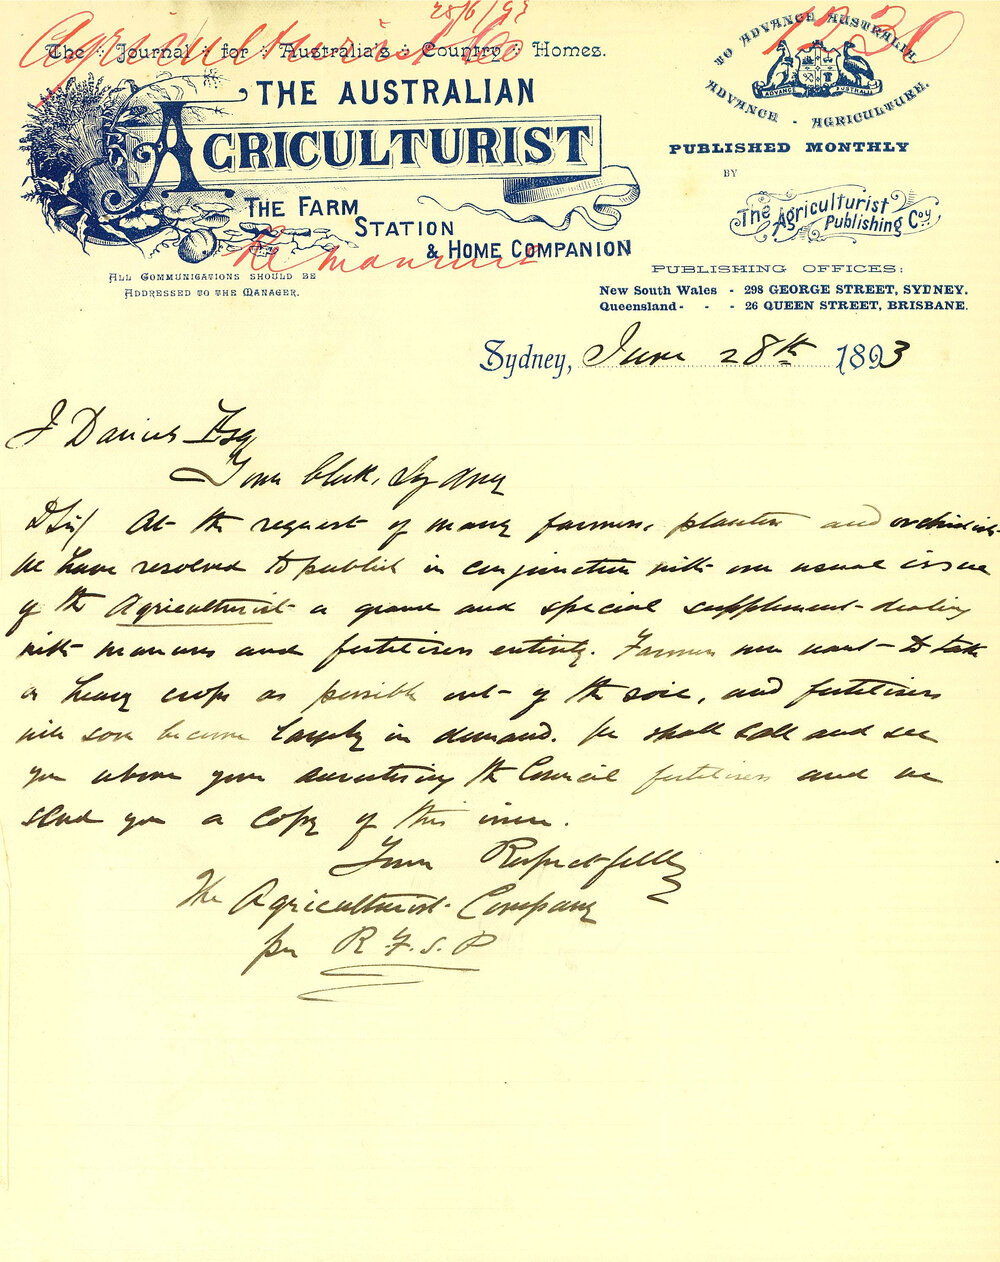 28/6/93
Agriculturist Co
1230
The Journal for Australia's Country Homes.
THE AUSTRALIAN
AGRICULTURIST
THE FARM
STATION
& HOME COMPANION
Re manures
ALL COMMUNICATIONS SHOULD BE
ADDRESSED TO THE MANAGER.
TO ADVANCE AUSTRALIA.
ADVANCE AUSTRALIA
ADVANCE - AGRICULTURE.
PUBLISHED MONTHLY
BY
The Agriculturist
Publishing Coy
PUBLISHING OFFICES:
New South Wales - 298 GEORGE STREET, SYDNEY.
Queensland - - - 26 QUEEN STREET, BRISBANE.
Sydney, June 28th 1893
J Davies Esq
Town Clerk, Sydney
D Sir/ At the request of many farmers, planters and orchardists
We have resolved to publish in conjunction with our usual issue
of the Agriculturist a grand and special supplement dealing
with manures and fertilisers entirely. Farmers now want to take
as heavy crops as possible out of the soil, and fertilisers
will soon become largely in demand. We shall call and see
you above your advertising the Council fertilisers and we
send you a copy of this issue.
Yours Respectfully
The Agriculturist Company
per R.F.S.P